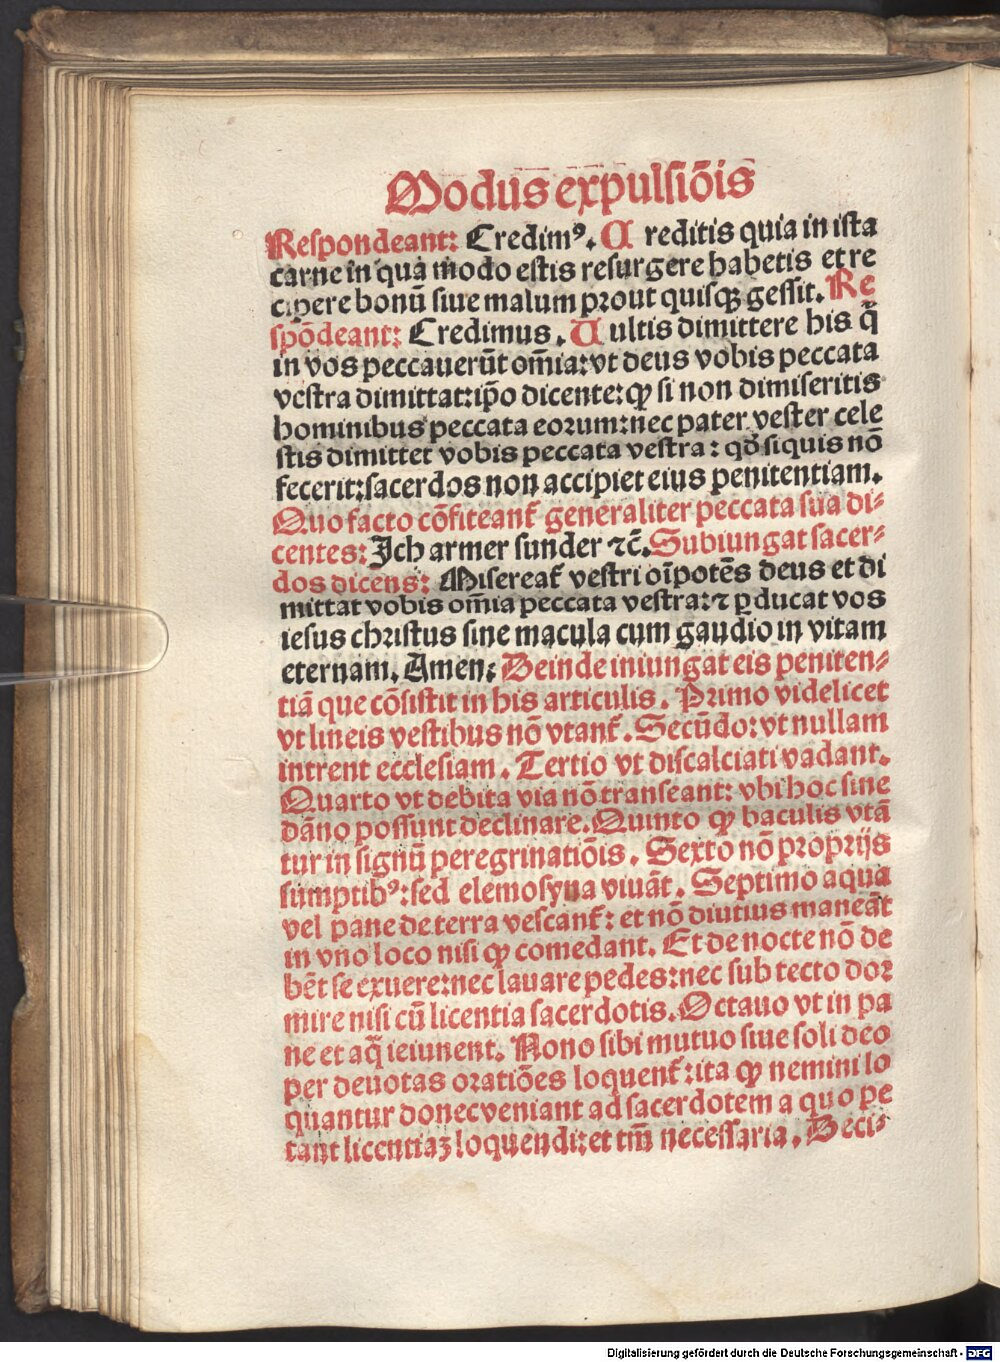 Modus expulsiōis
Respondeant: Credimꝰ. Creditis quia in ista
carne in qua modo estis resurgere habetis et re
cipere bonū siue malum prout quisqꝫ gessit. Re
spōdeant: Credimus. Uultis dimittere his q̄
in vos peccauerūt om̄ia: vt deus vobis peccata
vestra dimittat: ip̄o dicente: ꝙ si non dimiseritis
hominibus peccata eoꝛum: nec pater vester cele
stis dimittet vobis peccata vestra: qd̄ siquis nō
fecerit: sacerdos non accipiet eius penitentiam.
Quo facto cōfiteant᷑ generaliter peccata sua di⸗
centes: Ich armer sunder ⁊c̄. Subiungat sacer⸗
dos dicens: Misereat᷑ vestri oīpotēs deus et di
mittat vobis om̄ia peccata vestra: ⁊ ꝑducat vos
iesus chꝛistus sine macula cum gaudio in vitam
eternam. Amen: Deinde iniungat eis peniten⸗
tiā que cōsistit in his articulis. Primo videlicet
vt lineis vestibus nō vtant᷑. Secūdo: vt nullam
intrent ecclesiam. Tertio vt discalciati vadant.
Quarto vt debita via nō transeant: vbi hoc sine
dāno possunt declinare. Quinto ꝙ baculis vtā
tur in signū peregrinatiōis. Sexto nō pꝛopꝛijs
sumptibꝰ: sed elemosyna viuāt. Septimo aqua
vel pane de terra vescant᷑: et nō diutius maneāt
in vno loco nisi ꝙ comedant. Et de nocte nō de
bēt se exuere: nec lauare pedes: nec sub tecto doꝛ
mire nisi cū licentia sacerdotis. Octauo vt in pa
ne et aq̄ ieiunent. Nono sibi mutuo siue soli deo
per deuotas oꝛatiōes loquent᷑: ita ꝙ nemini lo
quantur donec veniant ad sacerdotem a quo pe
tant licentiaꝫ loquendi: et tm̄ necessaria. Deci⸗
Digitalisierung gefördert durch die Deutsche Forschungsgemeinschaft - DFG